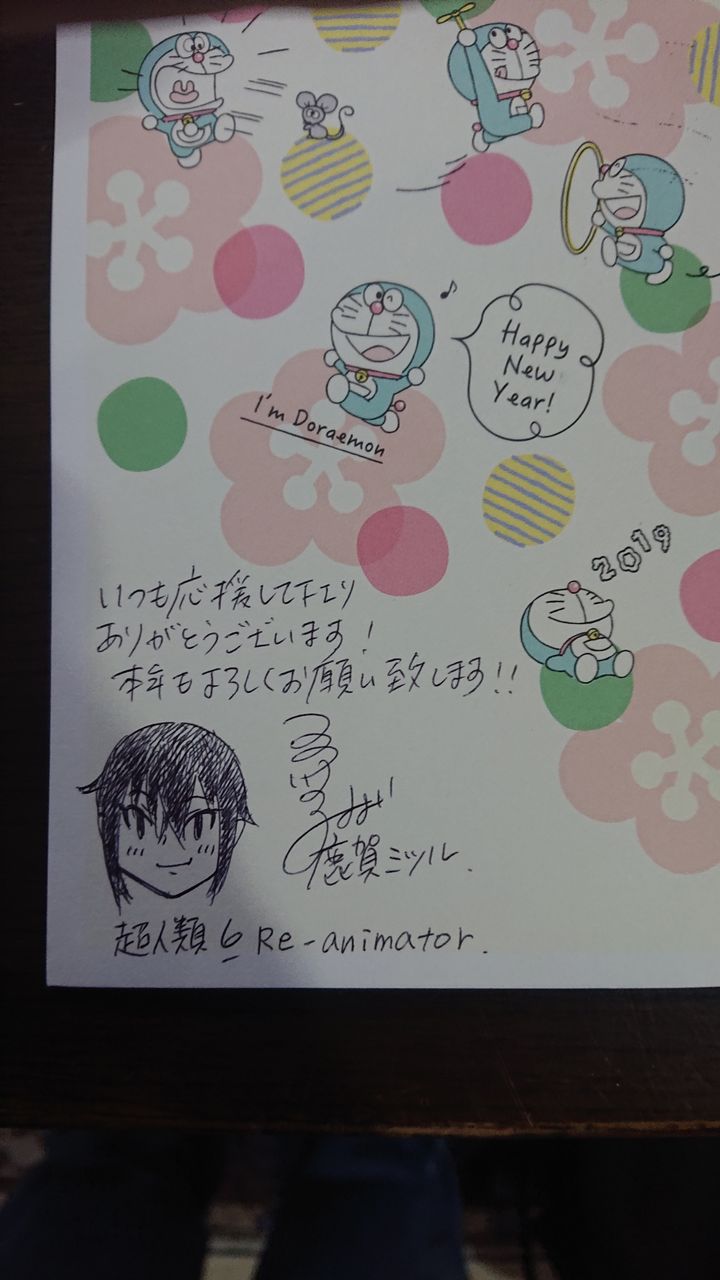 Happy
New
Year!
I'm Doraemon
2019
いつも応援して下エリ
ありがとうございます！
本年もよろしくお願い致します!!
鹿賀ミツル.
超人類6 Re-animator.